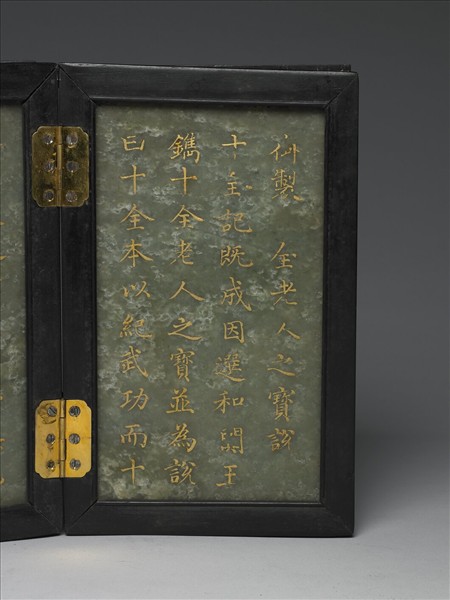 御製 全老人之寶說
十全記既成因選和闐玉
鐫十全老人之寶並為說
曰十全本以紀武功而十